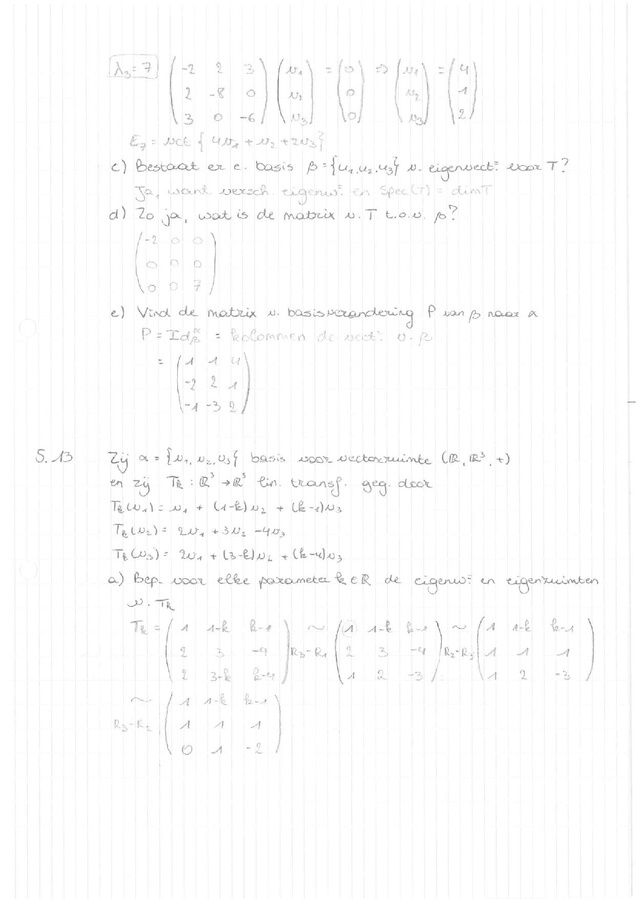 λ₃=7 (-2 2 3; 2 -8 0; 3 0 -6) (v₁; v₂; v₃) = (0; 0; 0) ⇒ (v₁; v₂; v₃) = (4; 1; 2)
E₇ = vct { 4v₁ + v₂ + 2v₃}
c) Bestaat er e. basis β = {u₁, u₂, u₃} v. eigenvect: voor T?
Ja, want versch. eigenw: en Spec(T) = dim T
d) Zo ja, wat is de matrix v. T t.o.v. β?
(-2 0 0; 0 0 0; 0 0 7)
e) Vind de matrix v. basisverandering P van β naar α
P = Id = kolommen de vect: v. β
= (1 1 4; -2 2 1; -1 -3 2)
5.13 Zij α = {v₁, v₂, v₃} basis voor vectorruimte (ℝ, ℝ³, +)
en zij Tk : ℝ³ → ℝ³ lin. transf. geg. door
Tk(v₁) = v₁ + (1-k)v₂ + (k-1)v₃
Tk(v₂) = 2v₁ + 3v₂ - 4v₃
Tk(v₃) = 2v₁ + (3-k)v₂ + (k-4)v₃
a) Bep. voor elke parameter k∈ℝ de eigenw: en eigenruimten
v. Tk
Tk = (1 1-k k-1; 2 3 -4; 2 3-k k-4) ~ R₃-R₁ (1 1-k k-1; 2 3 -4; 1 2 -3) ~ R₂-R₃ (1 1-k k-1; 1 1 1; 1 2 -3)
~ R₃-R₂ (1 1-k k-1; 1 1 1; 0 1 -2)